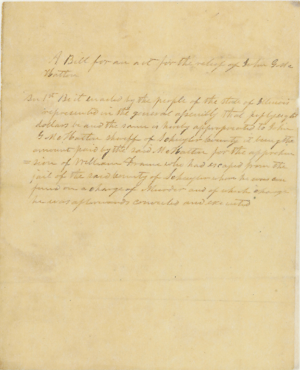 A Bill for an act for the relief of John G. Mc
Hatton
Sec 1st Be it enacted by the people of the state of Illinois
represented in the general assembly that fifty
dollars is and the same is hereby appropriated to John
G. Mc Hatton sheriff of Schuyler County it being the
amount paid by the said McHatton for the apprehen
sion of William Frame who had escaped from the
jail of the said County of Schuyler where he was con
fined on a charge of Murder and of which charge
he was afterwards convicted and